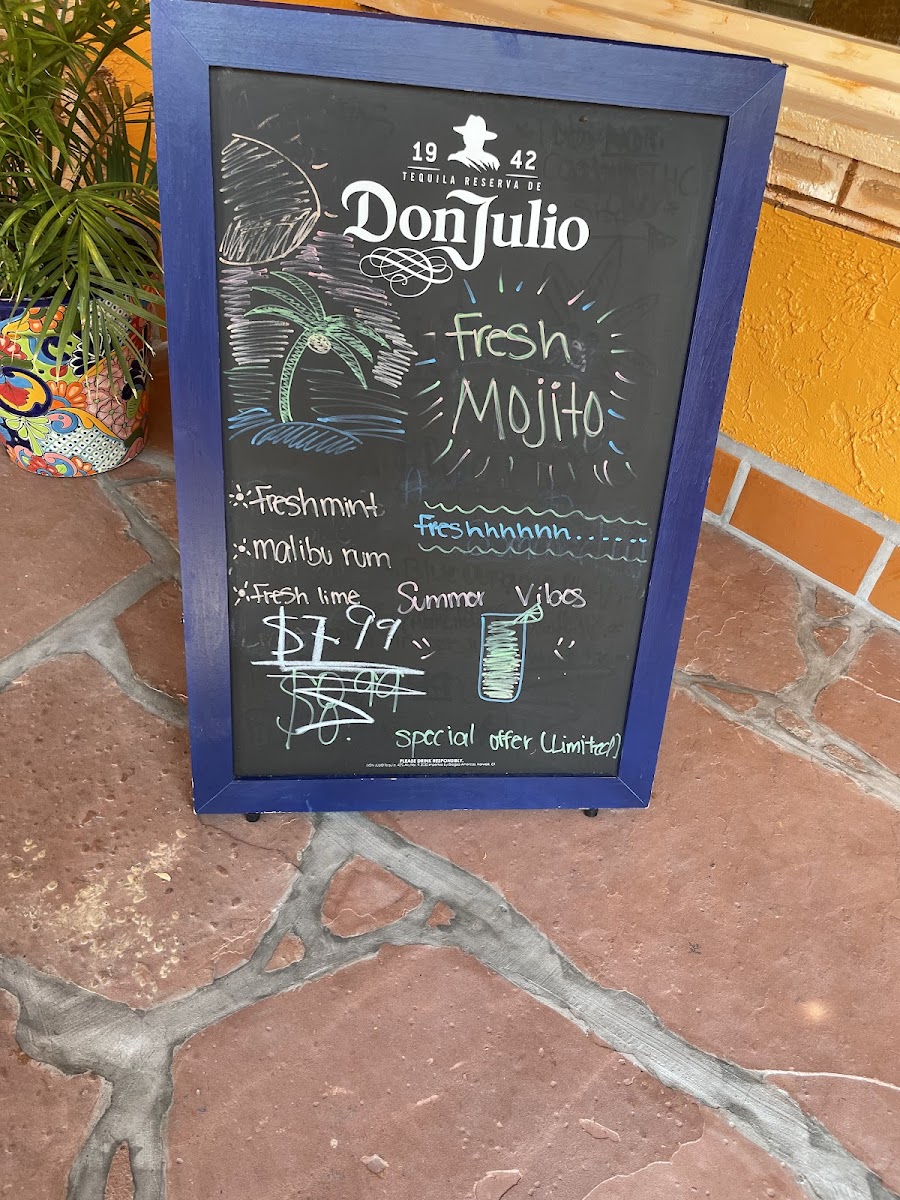 19 42
TEQUILA RESERVA DE
Don Julio
Fresh
Mojito
Fresh mint
malibu rum
Fresh lime
Freshhhhhhh......
Summer Vibes
$7.99
$8.99
special offer (Limited)
PLEASE DRINK RESPONSIBLY.